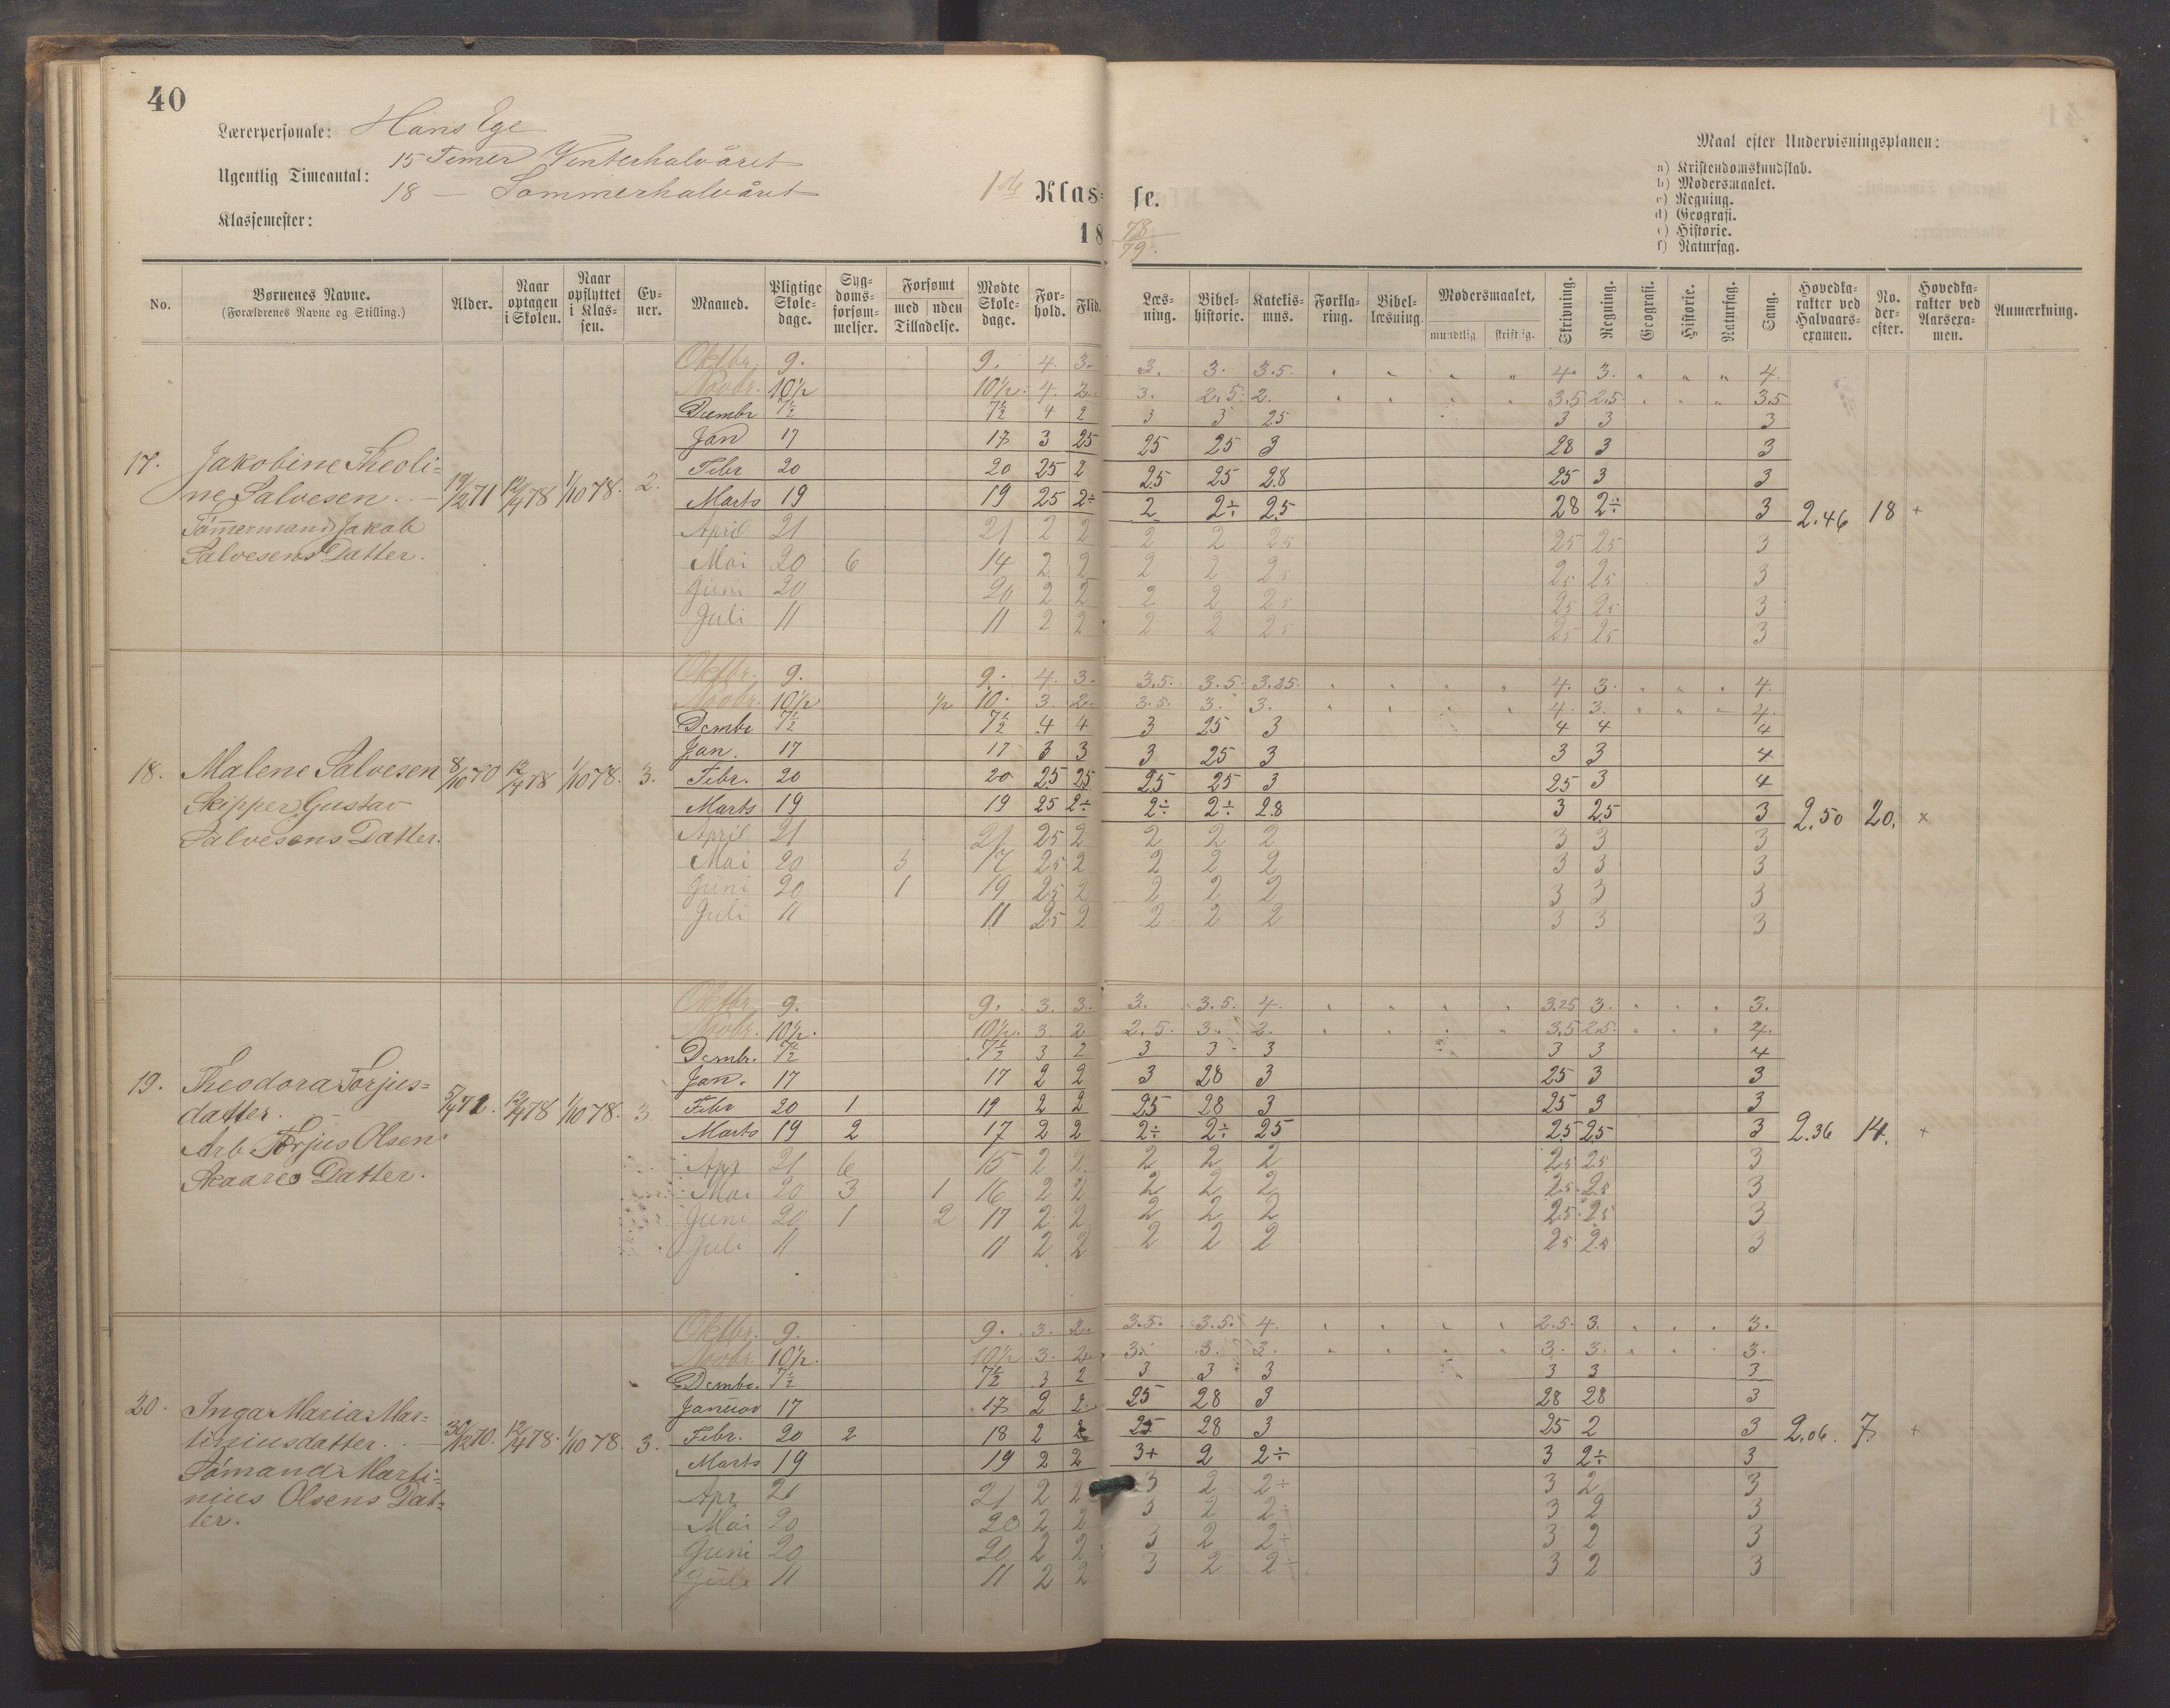 40
Lærerpersonale: Hans Ege
Ugentlig Timeantal: 15 Timer Vinterhalvåret
18 — Sommerhalvåret
Klassemester:
1ste Klas-
se.
18
78/79.
Maal efter Undervisningsplanen:
a) Kristendomskundskab.
b) Modersmaalet.
c) Regning.
d) Geografi.
e) Historie.
f) Naturfag.
No. | Børnenes Navne. (Forældrenes Navne og Stilling.) | Alder. | Naar optagen i Skolen. | Naar opflyttet i Klas-sen. | Ev-ner. | Maaned. | Pligtige Skole-dage. | Syg-doms-forsøm-melser. | Forsømt med uden Tilladelse. | Mødte Skole-dage. | For-hold. | Flid. | Læs-ning. | Bibel-historie. | Katekis-mus. | Forkla-ring. | Bibel-læsning. | Modersmaalet, mundtlig skriftlig. | Skrivning. | Regning. | Geografi. | Historie. | Naturfag. | Sang. | Hovedka-rakter ved Halvaars-examen. | No. der-efter. | Hovedka-rakter ved Aarsexa-men. | Anmærkning.
17. Jakobine Theoli-
ne Salvesen.
Tømmermand Jakob
Salvesens Datter.
19/2 71 12/4 78 1/10 78. 2.
Oktbr. 9. 9. 4. 3. 3. 3. 3.5. " " " " 4. 3. " " " 4.
Novbr. 10½ 10½. 4. 2. 3. 2.5. 2. " " " " 3.5 2.5. " " " 3.5
Decmbr 7½ 7½ 4 2 3 3 25 3 3 3
Jan 17 17 3 25 25 25 3 28 3 3
Febr 20 20 25 2 25 25 28 25 3 3
Marts 19 19 25 2÷ 2 2÷ 25 28 2÷ 3 2.46 18 +
April 21 21 2 2 2 2 25 25 25 3
Mai 20 6 14 2 2 2 2 25 25 25 3
Juni 20 20 2 2 2 2 25 25 25 3
Juli 11 11 2 2 2 2 25 25 25 3
18. Malene Salvesen
Skipper Gustav
Salvesens Datter.
8/10 70 12/4 78 1/10 78. 3.
Oktbr. 9. 9. 4. 3. 3.5. 3.5. 3.25. " " " " 4. 3. " " " 4.
Novbr. 10½ ½ 10. 3. 2. 3.5. 3. 3. " " " " 4. 3. " " " 4.
Dcmbr 7½ 7½ 4 4 3 25 3 4 4 4
Jan. 17 17 3 3 3 25 3 3 3 4
Febr. 20 20 25 25 25 25 3 25 3 4
Marts 19 19 25 2÷ 2÷ 2÷ 28 3 25 3 2.50 20. x
April 21 21 25 2 2 2 2 3 3 3
Mai 20 3 17 25 2 2 2 2 3 3 3
Juni 20 1 19 25 2 2 2 2 3 3 3
Juli 11 11 25 2 2 2 2 3 3 3
19. Theodora Torjus-
datter.
Arb. Torjus Olsen
Skaares Datter.
12/4 78 1/10 78. 3.
Oktbr. 9. 9. 3. 3. 3. 3.5. 4. " " " " 3.25 3. " " " 3.
Novbr. 10½. 10½. 3. 2 2.5. 3. 2. " " " " 3.5 2.5. " " " 4.
Dcmbr. 7½ 7½ 3 2 3 3 3 3 3 4
Jan. 17 17 2 2 3 28 3 25 3 3
Febr 20 1 19 2 2 25 28 3 25 3 3
Marts 19 2 17 2 2 2÷ 2÷ 25 25 25 3 2.36 14. +
Apr 21 6 15 2 2 2 2 2 25 25 3
Mai 20 3 1 16 2 2 2 2 2 25 25 3
Juni 20 1 2 17 2 2 2 2 2 25 25 3
Juli 11 11 2 2 2 2 2 25 25 3
20. Inga Maria Mar-
tiniusdatter.
Sømand Marti-
nius Olsens Dat-
ter.
30/12 70. 12/4 78. 1/10 78. 3.
Oktbr. 9. 9. 3. 2. 3.5. 3.5. 4. " " " " 2.5. 3. " " " 3.
Novbr. 10½. 10½ 3. 2. 3. 3. 3. " " " " 3. 3. " " " 3.
Dcmbr. 7½ 7½ 3 2 3 3 3 3 3 3
Januar 17 17 2 2 25 28 3 28 28 3
Febr. 20 2 18 2 2 25 28 3 25 2 3 2.06. 7. +
Marts 19 19 2 2 3+ 2 2÷ 3 2÷ 3
Apr 21 21 2 2 3 2 2÷ 3 2 3
Mai 20 20 2 2 3 2 2÷ 3 2 3
Juni 20 20 2 2 3 2 2÷ 3 2 3
Juli 11 11 2 2 3 2 2÷ 3 2 3